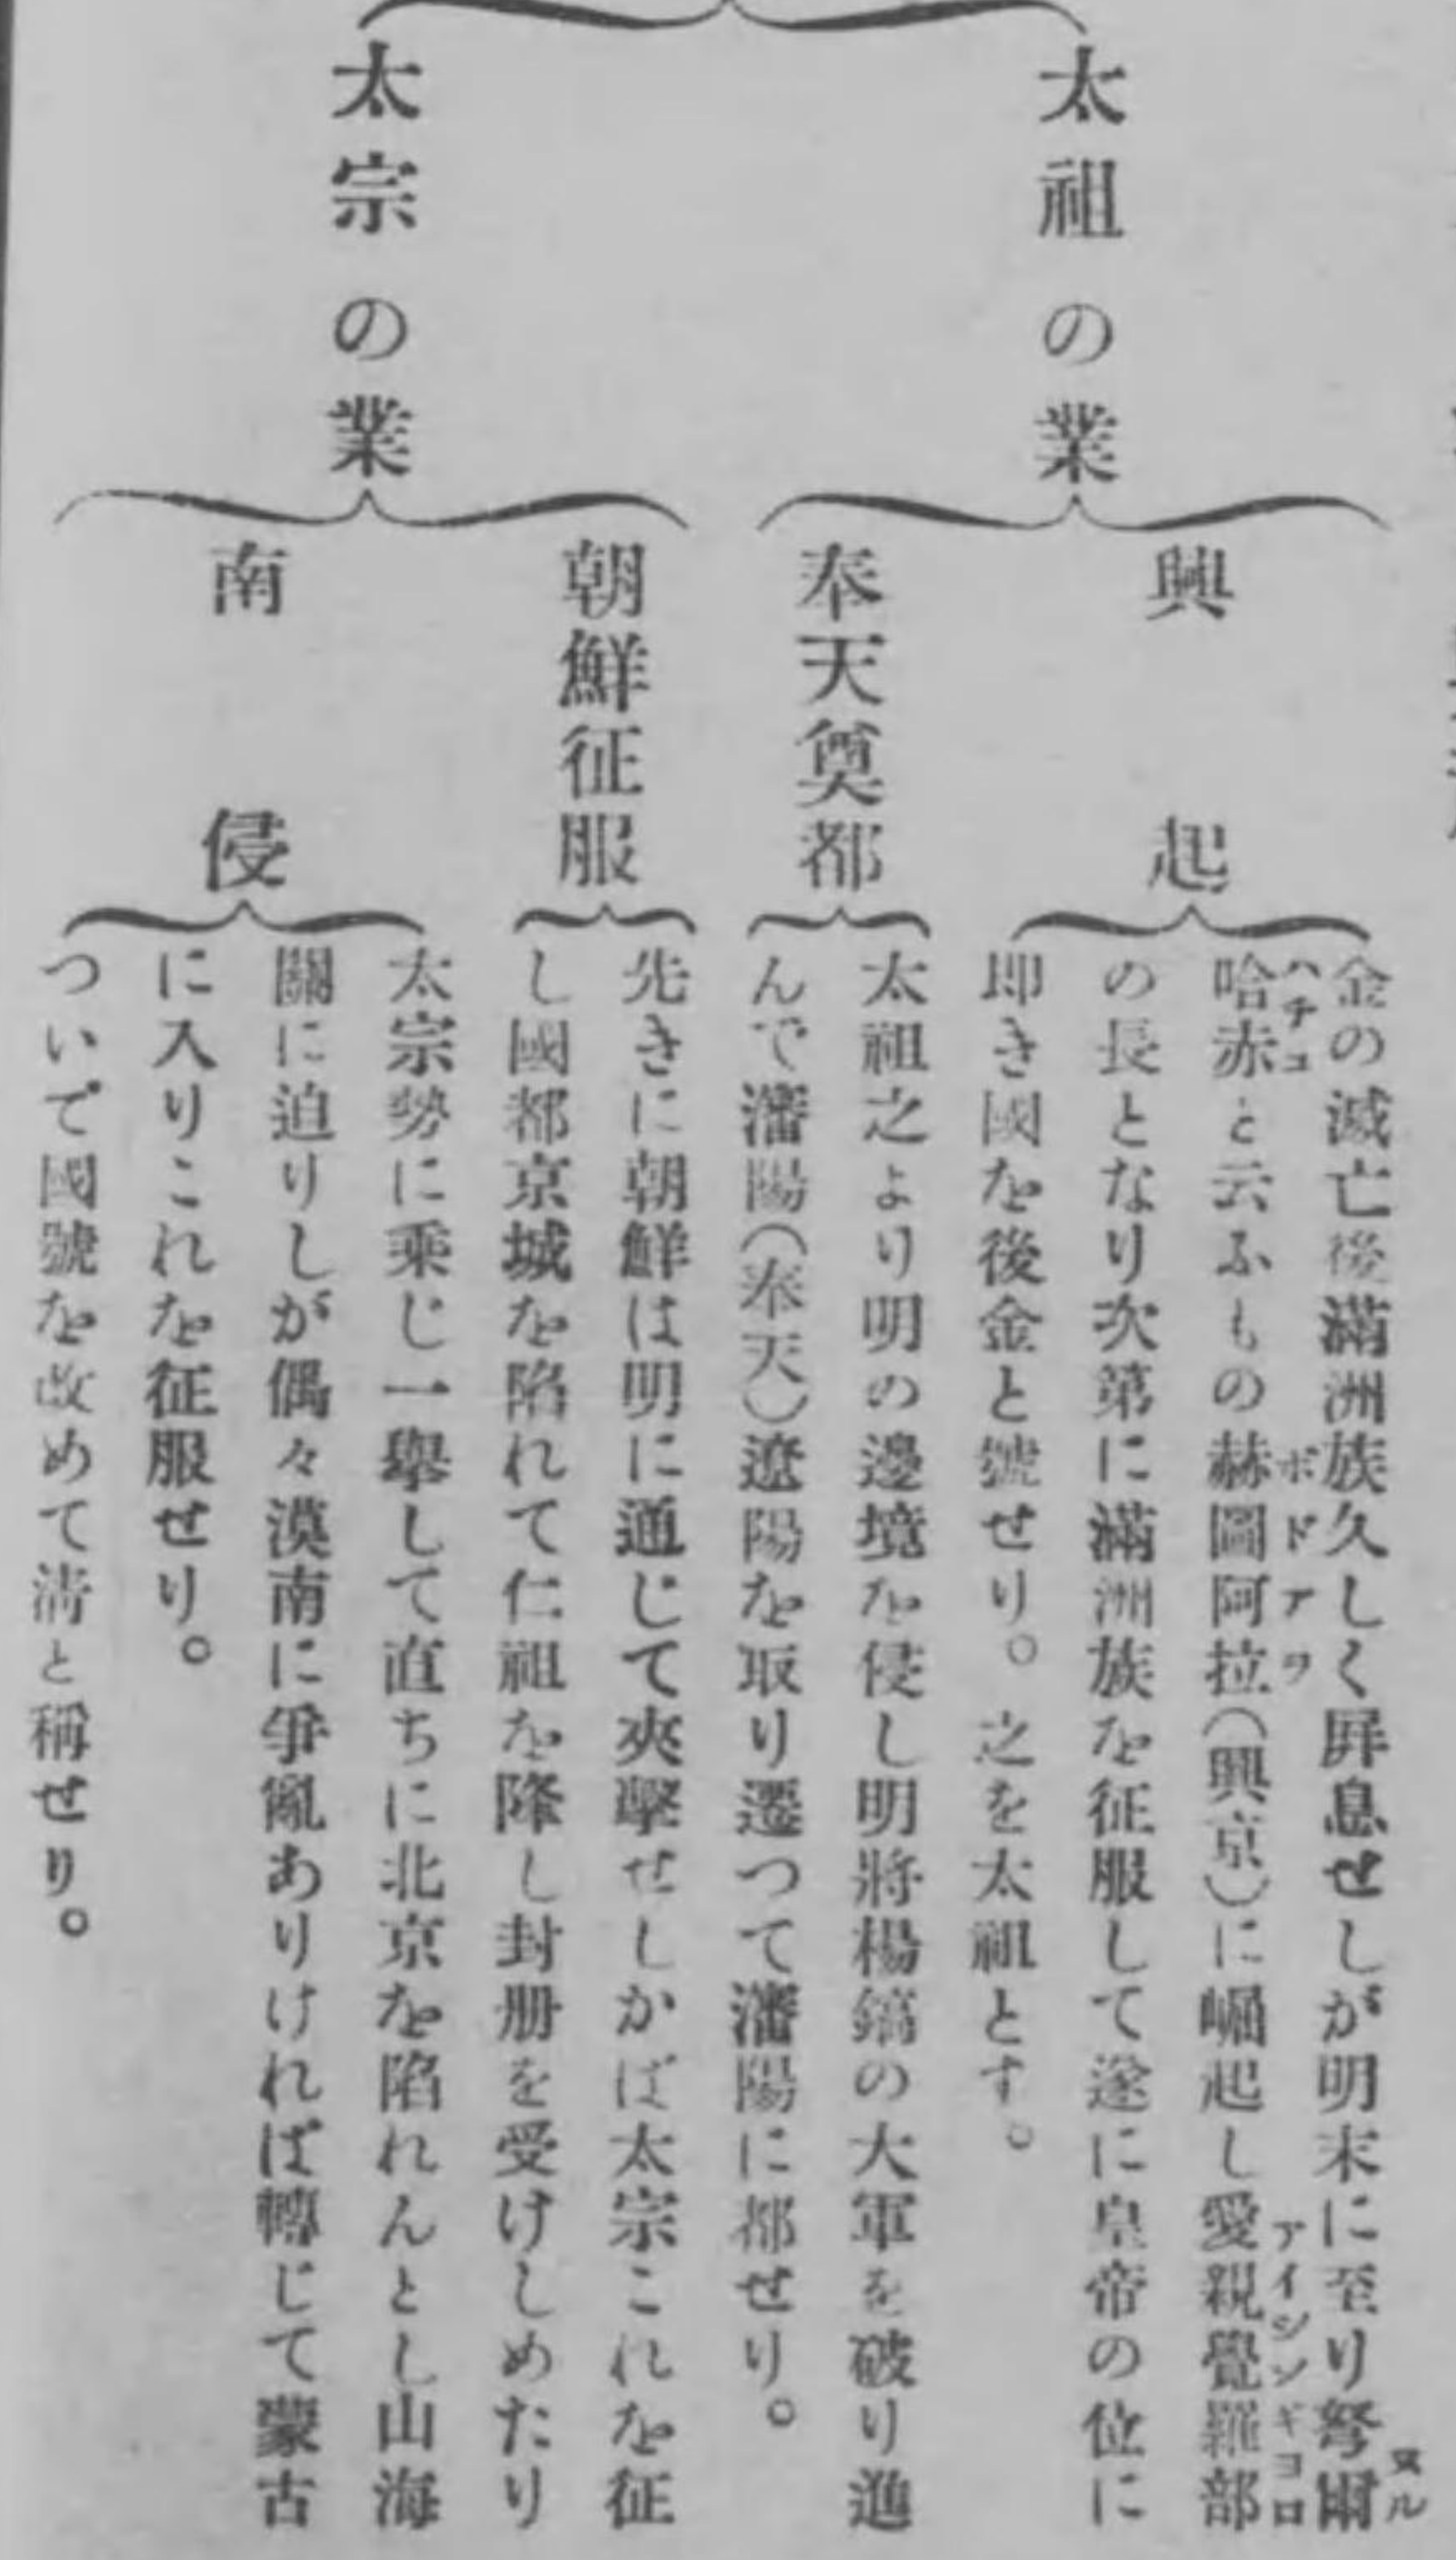 太祖の業
興起
金の滅亡後滿洲族久しく屛息せしが明末に至り弩爾
ヌル
哈赤と云ふもの赫圖阿拉(興京)に崛起し愛親覺羅部
ハチュ ボドアラ アイシンギヨロ
の長となり次第に滿洲族を征服して遂に皇帝の位に
即き國を後金と號せり。之を太祖とす。
奉天奠都
太祖之より明の邊境を侵し明將楊鎬の大軍を破り進
んで瀋陽(奉天)遼陽を取り遷つて瀋陽に都せり。
太宗の業
朝鮮征服
先きに朝鮮は明に通じて夾擊せしかば太宗これを征
し國都京城を陷れて仁祖を降し封册を受けしめたり
南侵
太宗勢に乘じ一擧して直ちに北京を陷れんとし山海
關に迫りしが偶々漠南に爭亂ありければ轉じて蒙古
に入りこれを征服せり。
ついで國號を改めて淸と稱せり。